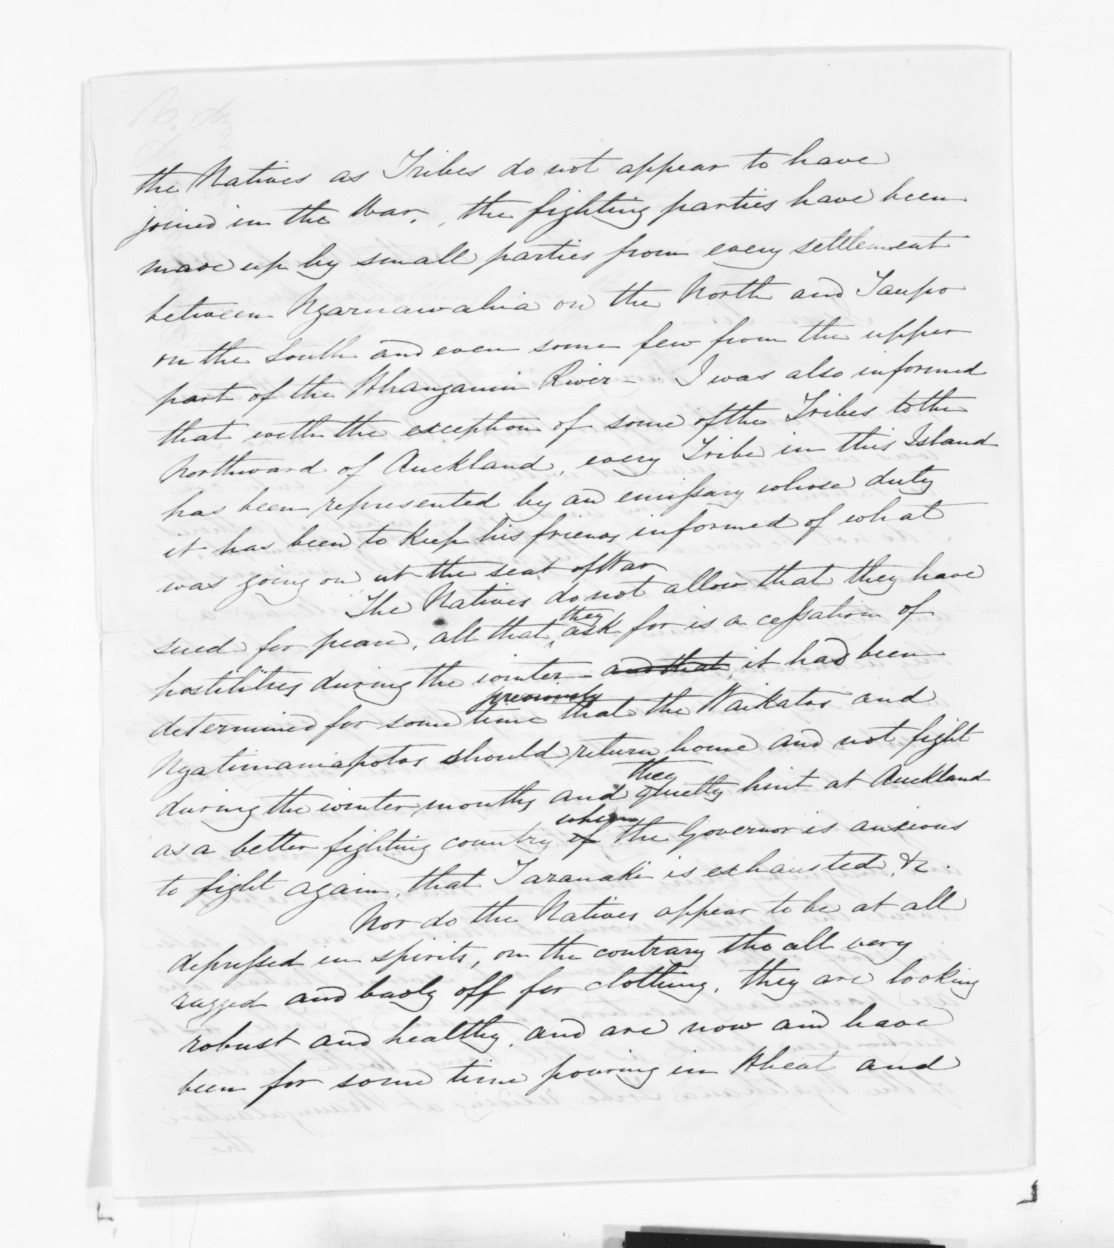 the Natives as Tribes do not appear to have
joined in the War, the fighting parties have been
made up by small parties from every settlement
between Ngaruawahia on the North and Taupo
on the South and even some few from the upper
part of the Whanganui River - I was also informed
that with the exception of some of the Tribes to the
Northward of Auckland, every Tribe in this Island
has been represented by an emissary whose duty
it has been to keep his friends informed of what
was going on at the seat of War
The Natives do not allow that they have
sued for peace, all that they ask for is a cessation of
hostilities during the winter and that, it had been
determined for some time previously that the Waikatos and
Ngatimaniapotos should return home and not fight
during the winter months and they quietly hint at Auckland
as a better fighting country if when the Governor is anxious
to fight again, that Taranaki is exhausted, &c.
Nor do the Natives appear to be at all
depressed in spirits, on the contrary tho all very
ragged and badly off for clothing, they are looking
robust and healthy, and are now and have
been for some time pouring in Wheat and